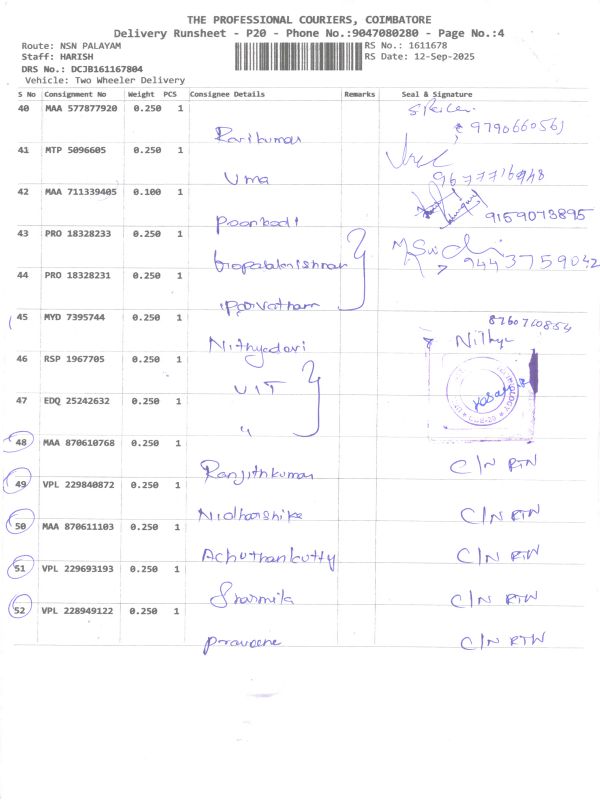 THE PROFESSIONAL COURIERS, COIMBATORE
Delivery Runsheet - P20 - Phone No.:9047080280 - Page No.:4
Route: NSN PALAYAM
RS No.: 1611678
Staff: HARISH
RS Date: 12-Sep-2025
DRS No.: DCJB161167804
Vehicle: Two Wheeler Delivery
S No Consignment No Weight PCS Consignee Details Remarks Seal & Signature
40 MAA 577877920 0.250 1
Ravikumar 9790660563
41 MTP 5096605 0.250 1
Uma
42 MAA 711339405 0.100 1
Poonkodi 9159073895
43 PRO 18328233 0.250 1
Gopalakrishnan 9443759042
44 PRO 18328231 0.250 1
Parvatham
45 MYD 7395744 0.250 1
8760710854
Nithyadevi Nithya
46 RSP 1967705 0.250 1
VIT
47 EDQ 25242632 0.250 1
"
48 MAA 870610768 0.250 1
Ranjithkumar C/N RTN
49 VPL 229840872 0.250 1
Nidharshika C/N RTN
50 MAA 870611103 0.250 1
Achuthankutty C/N RTN
51 VPL 229693193 0.250 1
Sharmila C/N RTN
52 VPL 228949122 0.250 1
Praveene C/N RTN